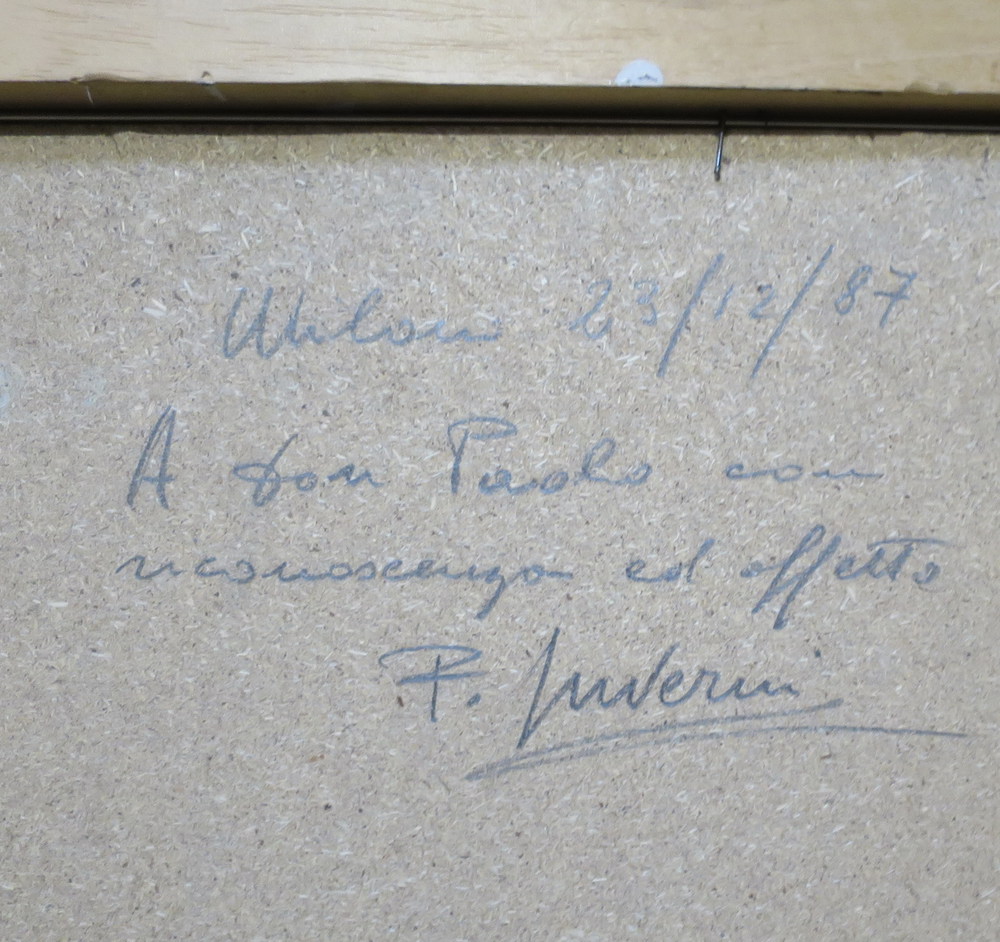 Milano 23/12/87
A don Paolo con
riconoscenza ed affetto
F. Inverni